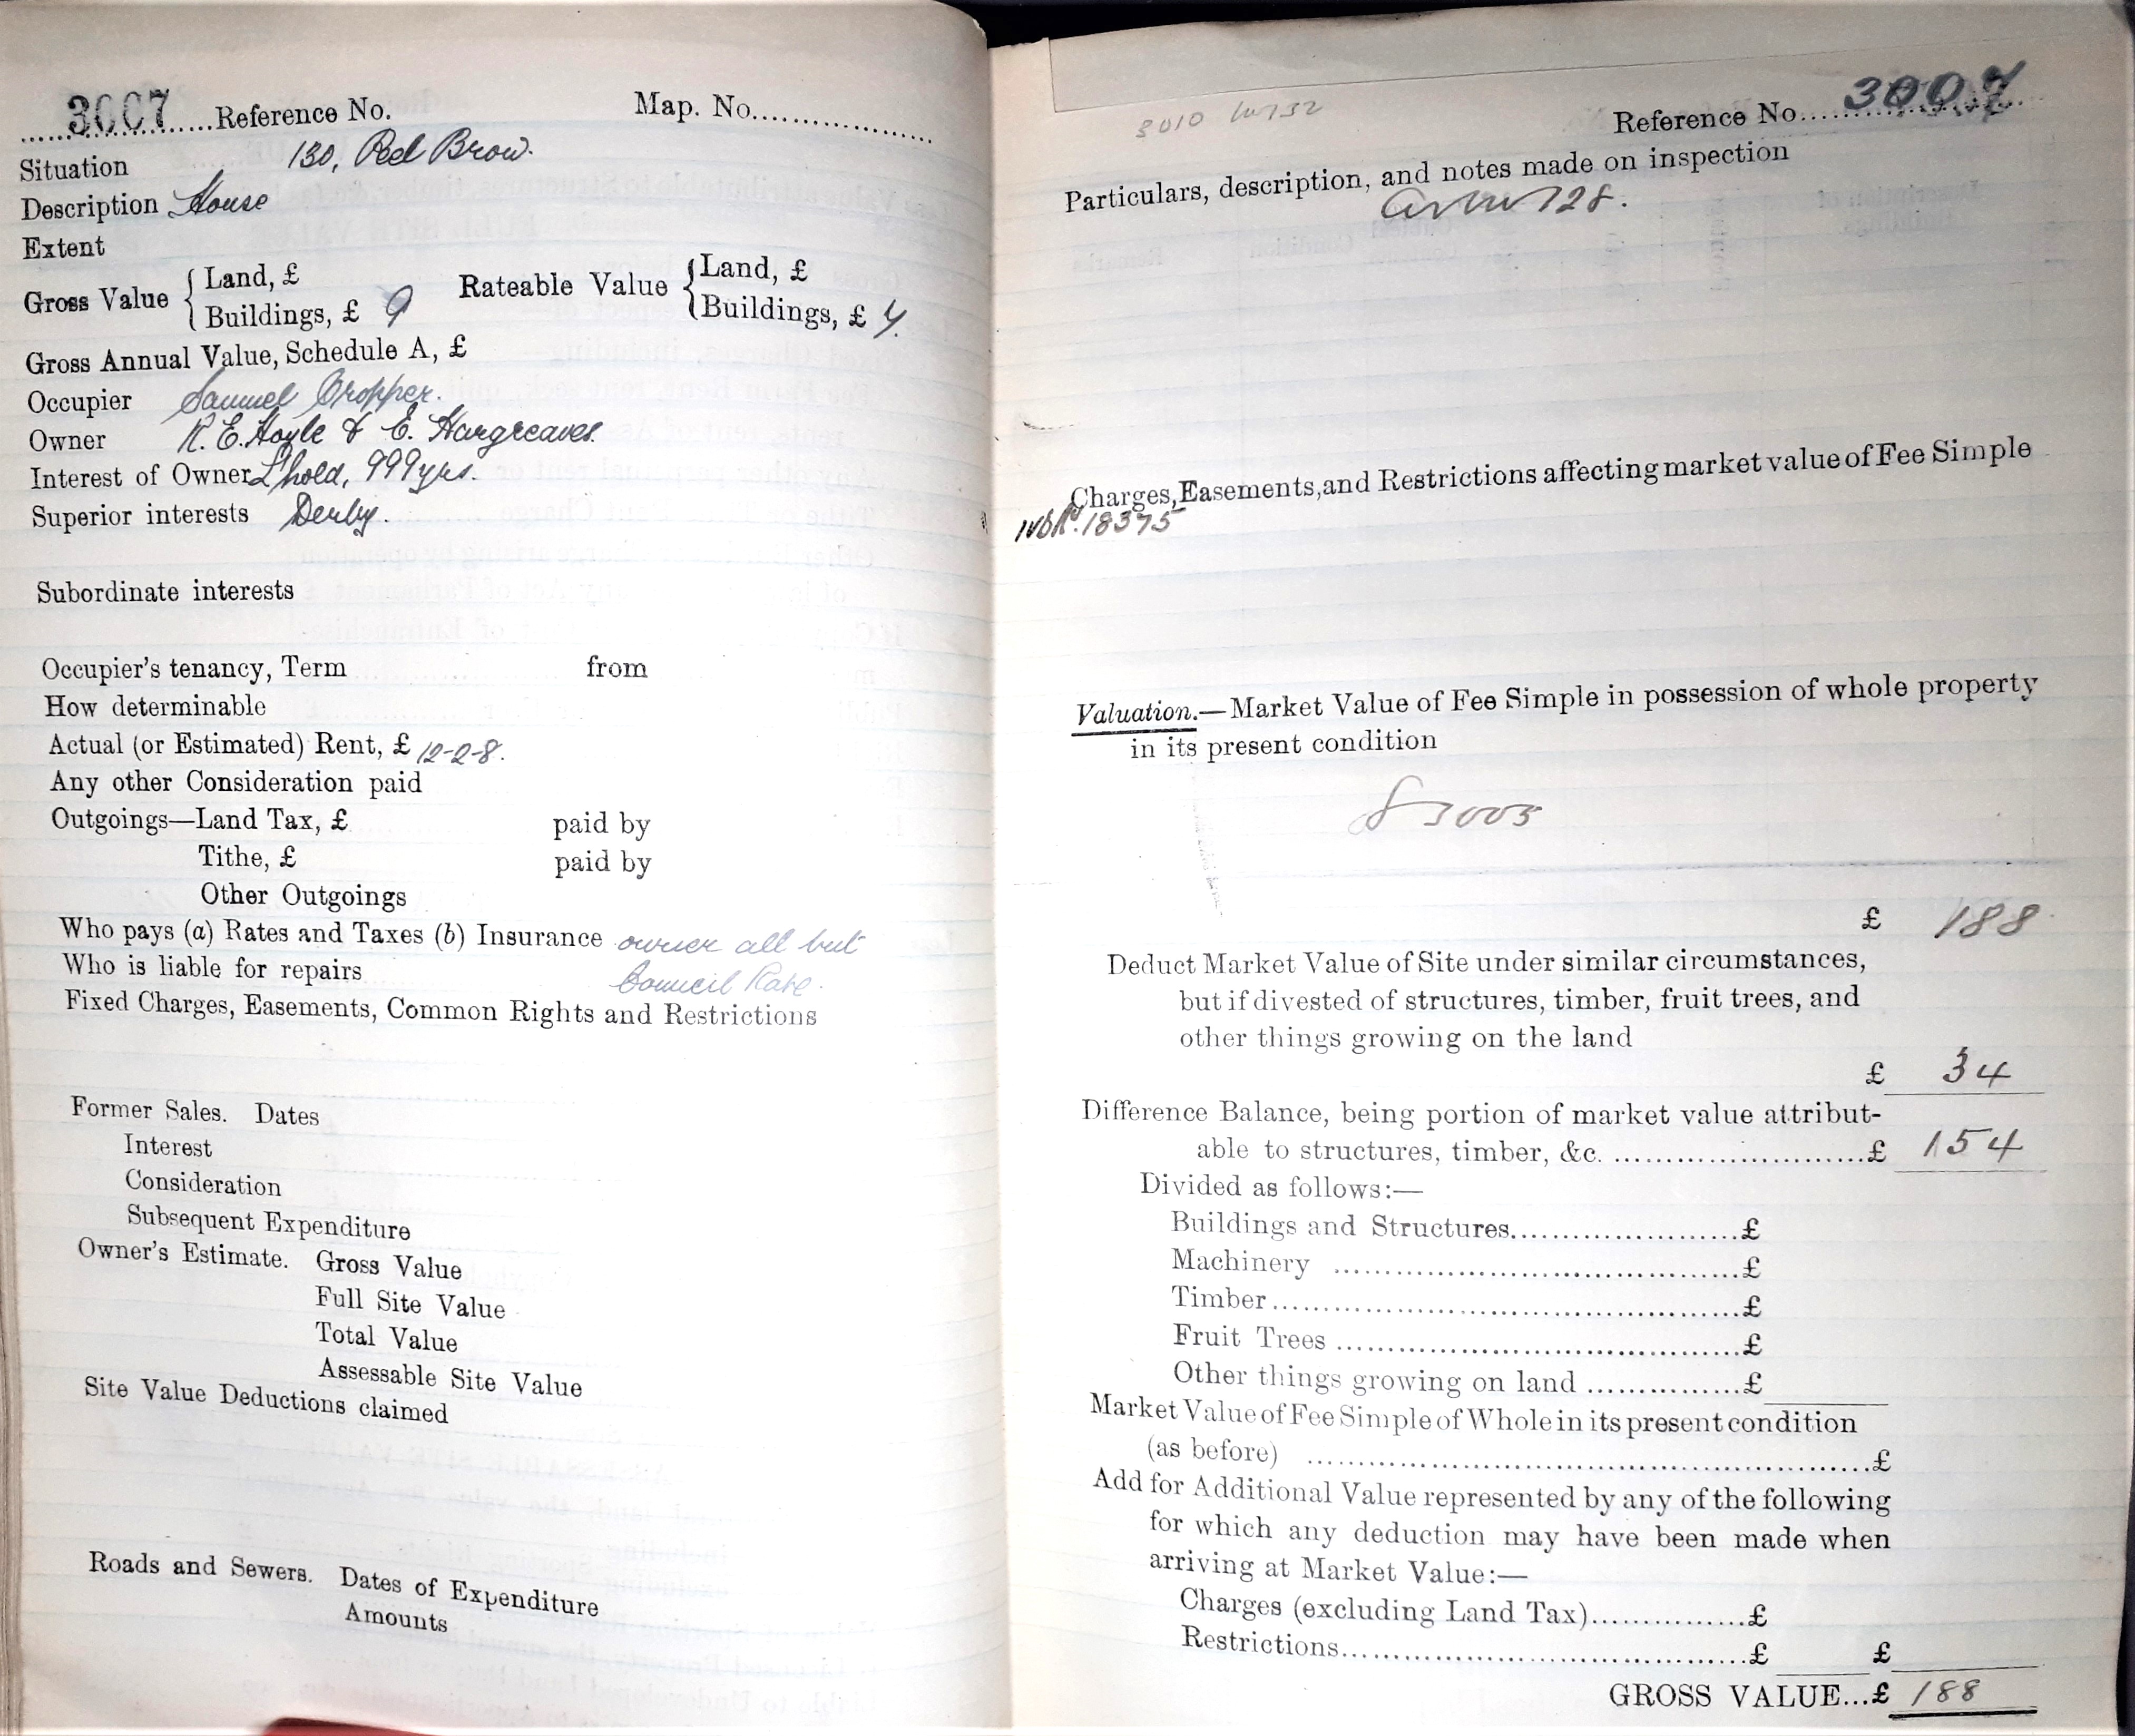 3007 Reference No. Map. No.
Situation 130, Peel Brow.
Description House
Extent
Gross Value { Land, £ Rateable Value { Land, £
Buildings, £ 9 Buildings, £
Gross Annual Value, Schedule A, £
Occupier Samuel Cropper.
Owner R. E. Hoyle & E. Hargreaves.
Interest of Owner L'hold, 999 yrs.
Superior interests Derby.
Subordinate interests
Occupier's tenancy, Term from
How determinable
Actual (or Estimated) Rent, £ 12-2-8.
Any other Consideration paid
Outgoings—Land Tax, £ paid by
Tithe, £ paid by
Other Outgoings
Who pays (a) Rates and Taxes (b) Insurance owner all but
Who is liable for repairs Council Rate.
Fixed Charges, Easements, Common Rights and Restrictions
Former Sales. Dates
Interest
Consideration
Subsequent Expenditure
Owner's Estimate. Gross Value
Full Site Value
Total Value
Assessable Site Value
Site Value Deductions claimed
Roads and Sewers. Dates of Expenditure
Amounts
3010 132
Reference No. 3007
Particulars, description, and notes made on inspection
128.
Charges, Easements, and Restrictions affecting market value of Fee Simple
18375
Valuation.—Market Value of Fee Simple in possession of whole property
in its present condition
3005
£ 188
Deduct Market Value of Site under similar circumstances,
but if divested of structures, timber, fruit trees, and
other things growing on the land
£ 34
Difference Balance, being portion of market value attribut-
able to structures, timber, &c. £ 154
Divided as follows:—
Buildings and Structures £
Machinery £
Timber £
Fruit Trees £
Other things growing on land £
Market Value of Fee Simple of Whole in its present condition
(as before) £
Add for Additional Value represented by any of the following
for which any deduction may have been made when
arriving at Market Value:—
Charges (excluding Land Tax) £
Restrictions £ £
GROSS VALUE...£ 188